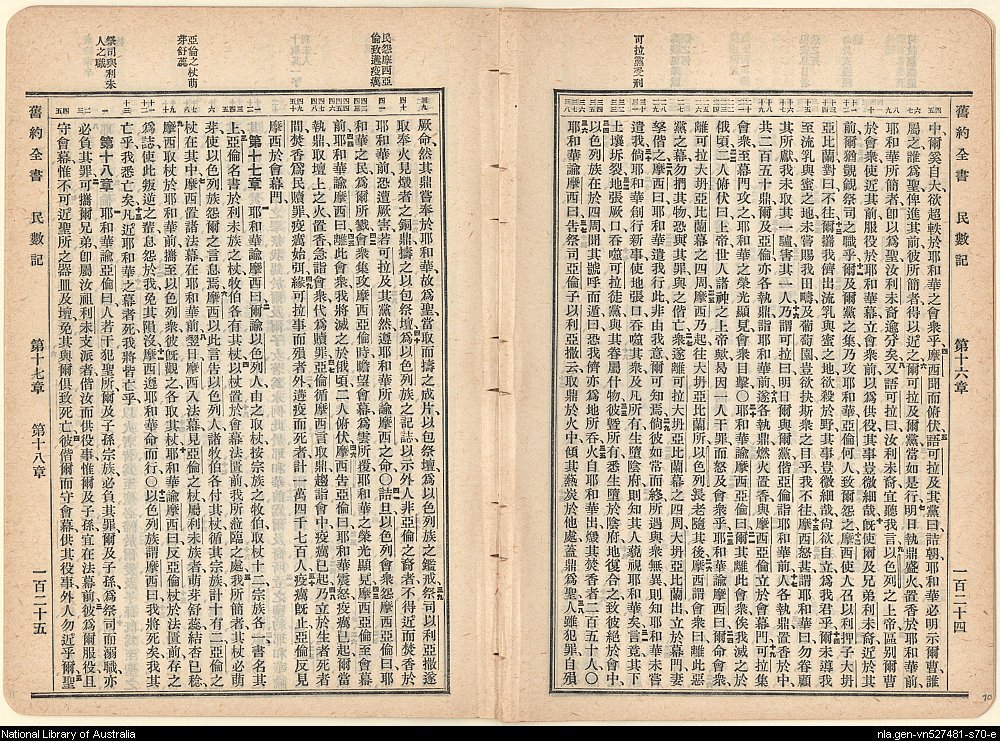 可拉黨受刑
舊約全書 民數記 第十六章 一百二十四
中、爾奚自大、欲超軼於耶和華之會衆乎、摩西聞而俯伏、語可拉及其黨曰、詰朝耶和華必明示、誰爲所
屬之、誰爲聖、俾進其前、彼所簡者、得以近之、爾可拉及爾黨、當如是行、明日執鼎盛火、置香於耶和華前、
耶和華所簡者、卽以爲聖、汝利未裔、妄自踰分矣、又語可拉曰、汝利未裔宜聽我言、以色列之上帝區别爾曹
於會衆、使近其前、服役於耶和華幕、立會衆前、以爲供役、其事豈微細哉、旣使爾及兄弟利未裔、近於其
前、爾猶覬覦祭司之職乎、爾及爾黨之集、乃攻耶和華、亞倫何人、致爾怨之、摩西使人召以利押子大坍
亞比蘭、對曰、不往、爾攜我儕、出流乳與蜜之地、欲殺於野、其事豈微細哉、尚欲自立爲我君乎、爾未導我
至流乳與蜜之地、未嘗賜我田疇及葡萄園、豈欲抉斯衆之目乎、我不往、摩西怒甚、謂耶和華曰、勿眷顧
其所獻、我未取其一驢、害其一人、乃謂可拉曰、明日爾與爾黨、偕亞倫詣耶和華前、人各執鼎、置香於中、
共二百五十鼎、爾及亞倫、亦各執鼎、詣耶和華前、遂各執鼎燃火置香、與摩西亞倫立於會幕門、可拉集
會衆至會幕門攻之、耶和華之榮光顯見、會衆目擊、〇耶和華諭摩西亞倫曰、爾其離此會衆、俟我滅之於
俄頃、二人俯伏曰、上帝、世人諸神之上帝歟、曷因一人干罪、而怒及會衆乎、耶和華諭摩西曰、爾命會衆、
離可拉大坍亞比蘭幕之四周、摩西乃起、往大坍亞比蘭所、以色列長老隨其後、摩西謂會衆曰、離此惡
黨之幕、勿捫其物、恐與其罪、與之偕亡、衆遂離可拉大坍亞比蘭幕之四周、大坍亞比蘭出、立於幕門、妻
孥偕之、摩西曰、耶和華遣我行此、非由我意、爾可知焉、倘彼如常而終、所遇與衆無異、則知耶和華未嘗
遣我、倘耶和華創行新事、使地張口呑噬其衆、及凡所有、生墮陰府、則知其人藐視耶和華矣、言竟、其下
土壤坼裂、地張厥口、呑噬可拉徒黨、與其眷屬什物、彼曁所有、悉生墮於陰府、地復合之、致彼絶於會中、
以色列族在於四周、聞其號呼而遁曰、恐我儕亦爲地所呑、火自耶和華出、燬其焚香者二百五十人、〇
耶和華諭摩西曰、告祭司亞倫子以利亞撒云、取鼎於火中、傾其燕炭於他處、蓋鼎爲聖、人雖犯罪自殞
民怨摩西亞倫致遘疫癘
亞倫之杖萌芽舒蕊
祭司與利未人之職
厥命、然其鼎嘗奉於耶和華、故爲聖、當取而擣之成片、以包祭壇、爲以色列族之鑑戒、祭司以利亞撒遂
取奉火見燬者之銅鼎擣之、以包祭壇、爲以色列族之記誌、以示外人非亞倫之裔者、不得近而焚香於
耶和華前、恐遭厥害、若可拉及其黨然、遵耶和華所諭摩西之命、〇詰旦、以色列會衆、怨摩西亞倫曰、耶
和華之民、爲爾所戮、會衆集攻摩西亞倫時、瞻望會幕、爲雲所覆、耶和華之榮光顯見、摩西亞倫至會幕
前、耶和華諭摩西曰、離此會衆、我將滅之於俄頃、二人俯伏、摩西告亞倫曰、耶和華震怒、疫癘已起、爾當
執鼎取壇上之火置香、急詣會衆、代爲贖罪、亞倫循摩西言、取鼎趨詣會中、疫癘已起、乃立於生者死者
間、焚香爲民贖罪、疫癘始弭、緣可拉事而殞者外、遘疫而死者、計一萬四千七百人、疫癘旣止、亞倫反見
摩西於會幕門、
第十七章 耶和華諭摩西曰、爾諭以色列人、由之取杖、按宗族之牧伯、取杖十二、宗族各一、書名其
上、亞倫名書於利未族之杖、牧伯各有其杖、以杖置於會幕法匱前、我所蒞臨之處、我所簡者、其杖必萌
芽、使以色列族怨爾之言息焉、摩西以此言告以色列人、諸牧伯各付其杖、循其宗族、計十有二、亞倫之
杖在其中、摩西置諸法幕、在耶和華前、翌日摩西入法幕、見亞倫之杖屬利未族者、萌芽舒蕊、結杏已稔、
摩西取杖於耶和華前、攜至以色列衆、彼旣觀之、各取其杖、耶和華諭摩西曰、反亞倫杖於法匱前、存之
爲誌、使此叛逆之輩、息怨於我、免其隕沒、摩西遵耶和華命而行、〇以色列族謂摩西曰、我將死矣、我其
亡乎、我悉亡矣、凡近耶和華之幕者死、我將偕亡乎、
第十八章 耶和華諭亞倫曰、人若干犯聖所、爾及子孫宗族、必負其罪、爾及子孫、爲祭司而溺職、亦
必負其罪、可攜爾兄弟、卽屬汝祖利未支派者偕汝、而供役事、惟爾及子孫、宜在法幕前、彼爲爾服役、且
守會幕、惟不可近聖所之器皿及壇、免其與爾俱致死亡、彼偕爾而守會幕、供其役事、外人勿近乎爾、聖
舊約全書 民數記 第十七章 第十八章 一百二十五
70
National Library of Australia
nla.gen-vn527481-s70-e